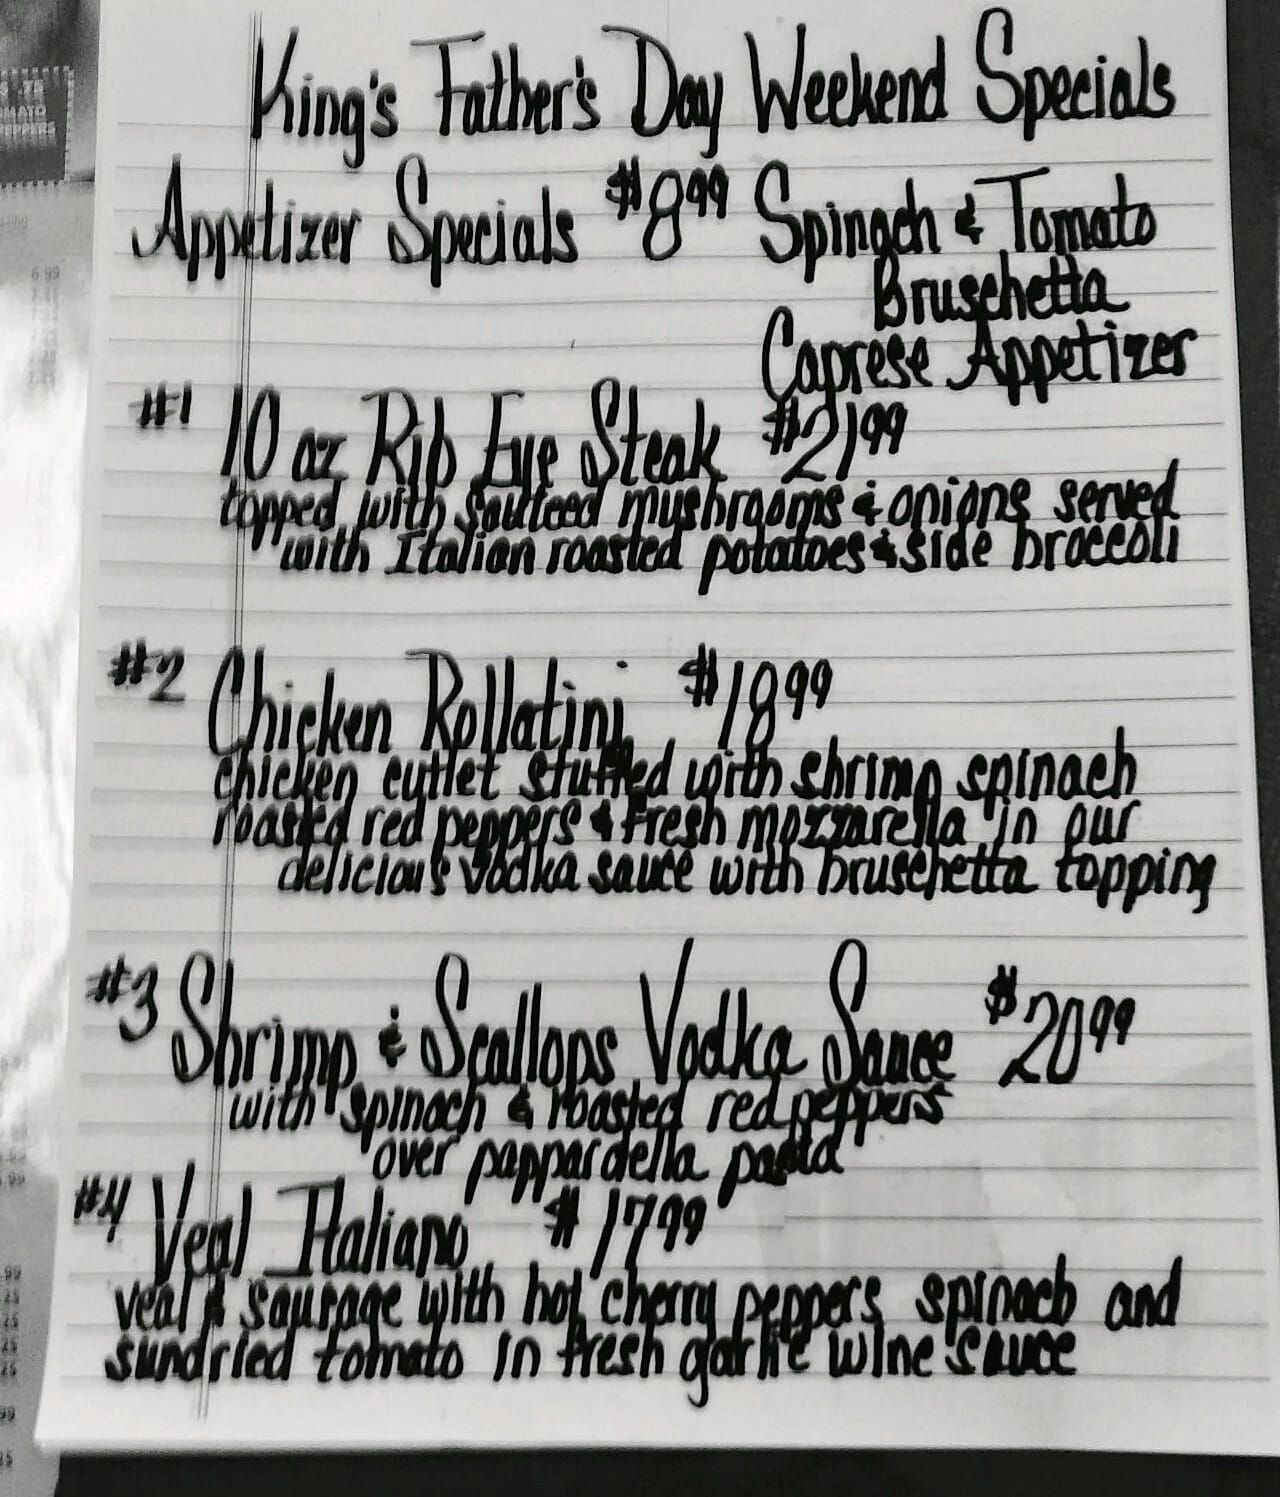 King's Father's Day Weekend Specials
Appetizer Specials $8.99 Spinach & Tomato
Bruschetta
Caprese Appetizer
#1 10 oz Rib Eye Steak $21.99
topped with sauteed mushrooms & onions served
with Italian roasted potatoes & side broccoli
#2 Chicken Rollatini $18.99
chicken cutlet stuffed with shrimp spinach
roasted red peppers & fresh mozzarella in our
delicious vodka sauce with bruschetta topping
#3 Shrimp & Scallops Vodka Sauce $20.99
with spinach & roasted red peppers
over pappardella pasta
#4 Veal Italiano $17.99
veal & sausage with hot cherry peppers spinach and
sundried tomato in fresh garlic wine sauce